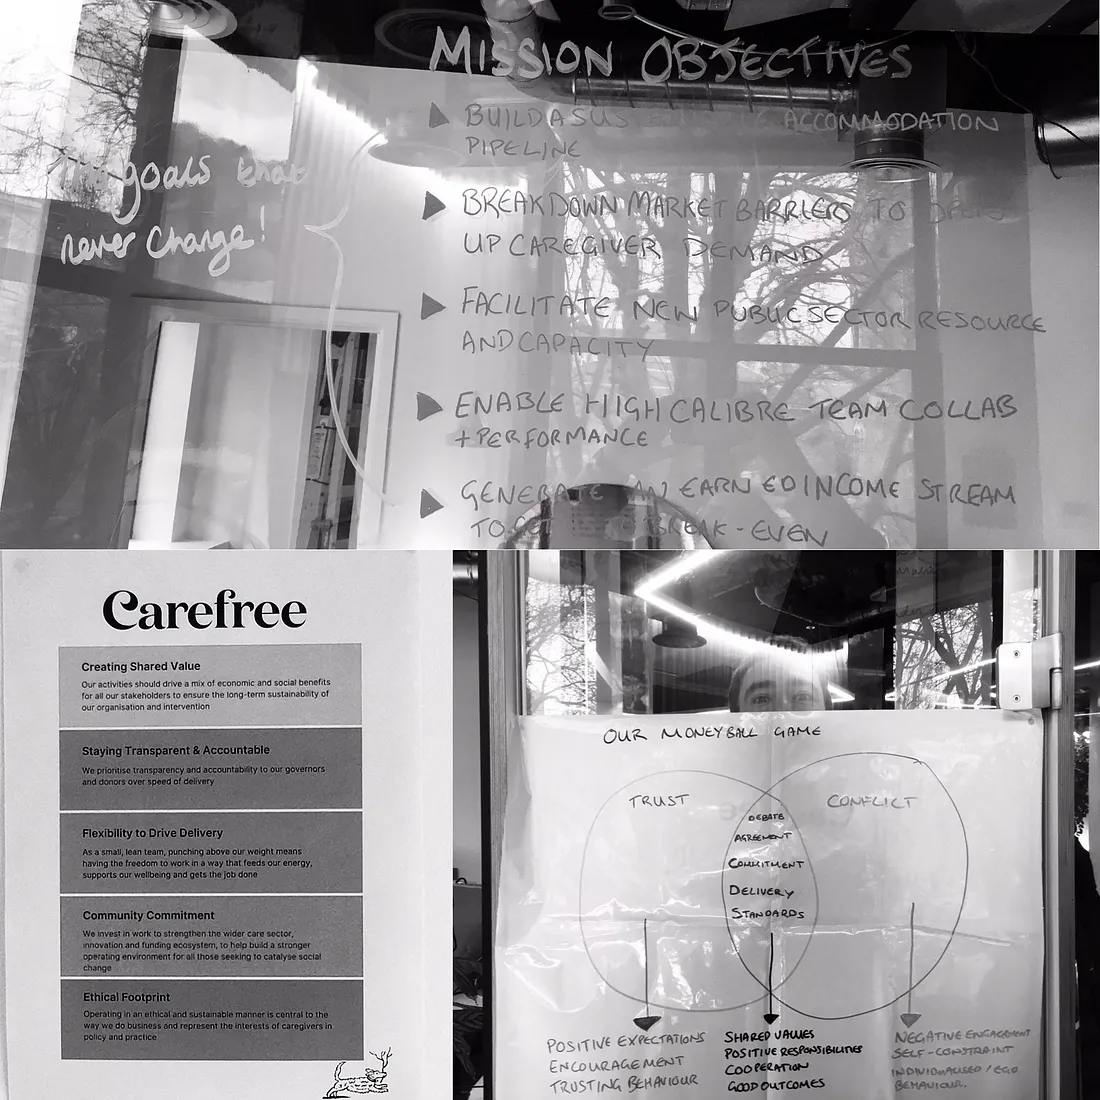 MISSION OBJECTIVES
BUILD A SUS ACCOMMODATION
PIPELINE
goals that
never change!
BREAKDOWN MARKET BARRIERS TO OPEN
UP CAREGIVER DEMAND
FACILITATE NEW PUBLIC SECTOR RESOURCE
AND CAPACITY
ENABLE HIGH CALIBRE TEAM COLLAB
+ PERFORMANCE
GENERATE AN EARNED INCOME STREAM
TO BREAK-EVEN
Carefree
Creating Shared Value
Our activities should drive a mix of economic and social benefits
for all our stakeholders to ensure the long-term sustainability of
our organisation and intervention
Staying Transparent & Accountable
We prioritise transparency and accountability to our governors
and donors over speed of delivery
Flexibility to Drive Delivery
As a small, lean team, punching above our weight means
having the freedom to work in a way that feeds our energy,
supports our wellbeing and gets the job done
Community Commitment
We invest in work to strengthen the wider care sector,
innovation and funding ecosystem, to help build a stronger
operating environment for all those seeking to catalyse social
change
Ethical Footprint
Operating in an ethical and sustainable manner is central to the
way we do business and represent the interests of caregivers in
policy and practice
OUR MONEYBALL GAME
TRUST
CONFLICT
DEBATE
AGREEMENT
COMMITMENT
DELIVERY
STANDARDS
POSITIVE EXPECTATIONS
ENCOURAGEMENT
TRUSTING BEHAVIOUR
SHARED VALUES
POSITIVE RESPONSIBILITIES
COOPERATION
GOOD OUTCOMES
NEGATIVE ENGAGEMENT
SELF-CONSTRAINT
INDIVIDUALISED / EGO
BEHAVIOUR.